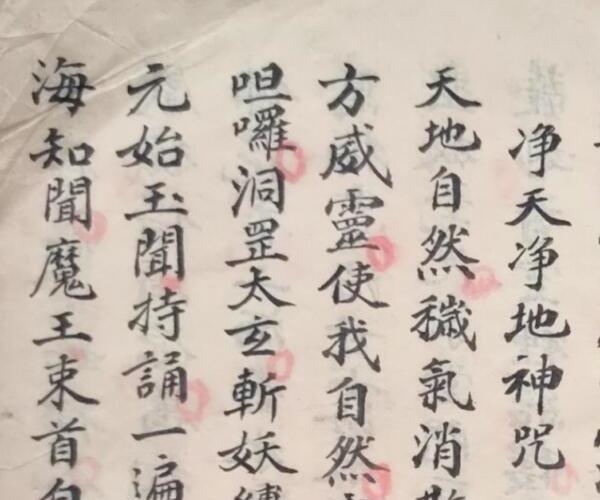 净天净地神咒
天地自然穢氣消散
方威靈使我自然
呾囉洞罡太玄斬妖縛
元始玉聞持誦一遍
海知聞魔王束首